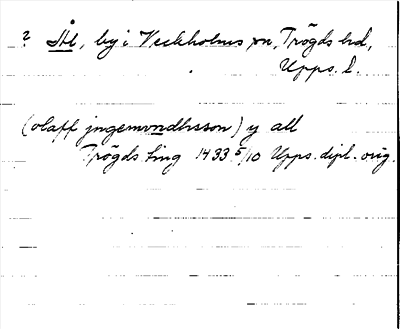 ? Ål, by i Veckholms sn, Trögds hd,
Upps. l.
(olaff jngemvndhsson) y all
Trögds ting 1433 5/10 Upps. dipl. orig.